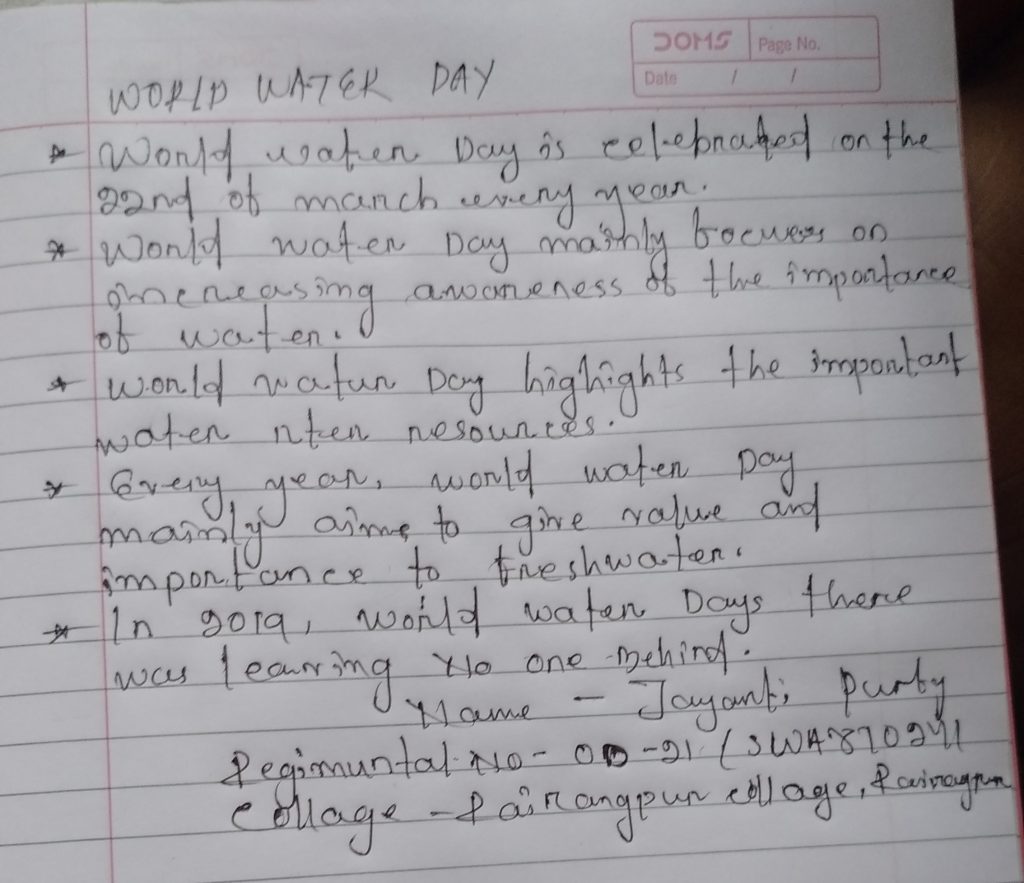 DOMS
Page No.
Date / /
WORLD WATER DAY
* World water Day is celebrated on the
22nd of march every year.
* World water Day mainly focuses on
increasing awareness of the importance
of water.
* World water Day highights the important
water nter resources.
* Every year, world water Day
mainly aims to give value and
importance to freshwater.
* In 2019, world water Days there
was learning No one behind.
Name - Jayanti Purty
Regimuntal No- OD -21 (SWA87024
collage - Rairangpur collage, Rairangpur